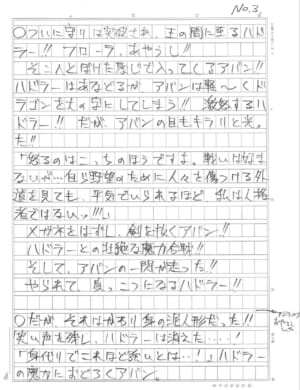 No.3
○ついに守りは突破され、王の間に至るハド
ラー!!フローラ、あやうし!!
そこへとぼけた感じで入ってくるアバン!!
ハドラーはあなどるが、アバンは軽〜くド
ラゴンをその字にしてしまう!!激怒するハ
ドラー!!だが、アバンの目もキラリと光っ
た!!
「怒るのはこっちのほうですよ。戦いは好ま
ないが…自ら野望のために人々を傷つける外
道を見ても、平気でいられるほど、私は人格
者ではないっ!!!」
メガネをはずし、剣を抜くアバン!!
ハドラーとの壮絶な魔力合戦!!
そして、アバンの一閃が走った!!
やられて し真っ二つになるハドラー!!
○だが、それはかわり身の泥人形だった!!
笑い声を残し、ハドラーは消えた…!
「身代りでこれほど強いとは…!」ハドラー
の魔力におどろくアバン。